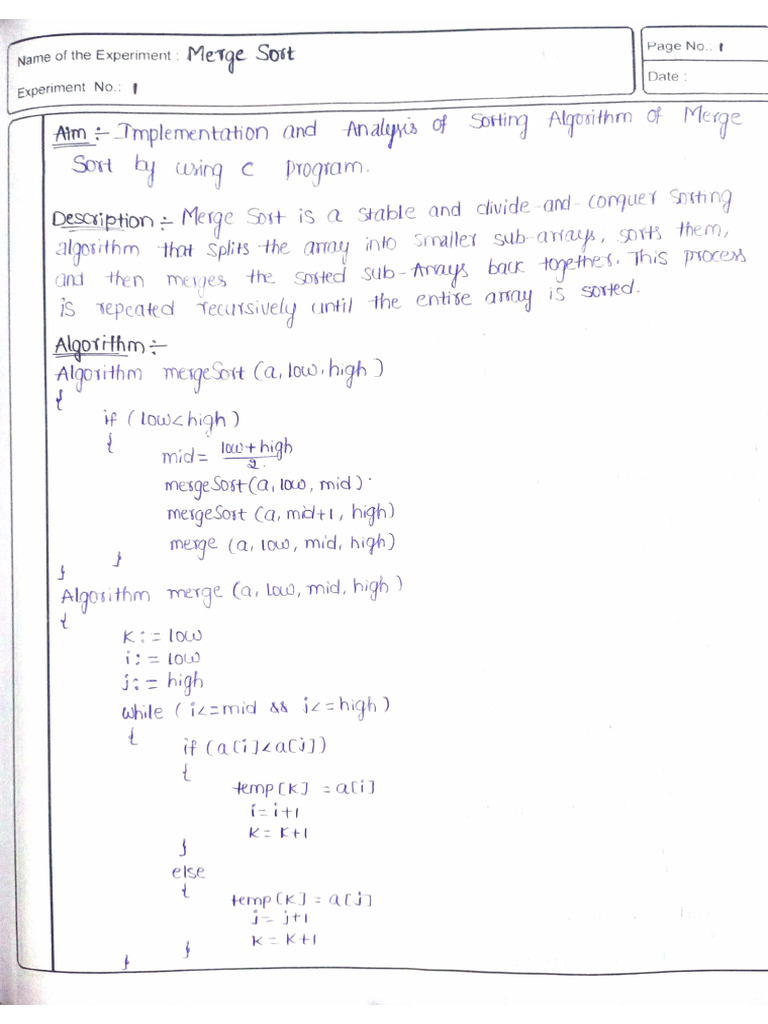 Name of the Experiment : Merge Sort
Page No.: 1
Experiment No.: 1
Date :
Aim :- Implementation and Analysis of Sorting Algorithm of Merge
Sort by using C program.
Description :- Merge Sort is a stable and divide-and-conquer sorting
algorithm that splits the array into smaller sub-arrays, sorts them,
and then merges the sorted sub-Arrays back together. This process
is repeated recursively until the entire array is sorted.
Algorithm :-
Algorithm mergeSort (a, low, high)
{
if (low<high)
{
mid = low+high
2
mergeSort(a, low, mid)
mergeSort (a, mid+1, high)
merge (a, low, mid, high)
}
}
Algorithm merge (a, low, mid, high)
{
k := low
i := low
j := high
while (i<=mid && j<=high)
{
if (a[i]<a[j])
{
temp[k] = a[i]
i = i+1
k = k+1
}
else
{
temp[k] = a[j]
j = j+1
k = k+1
}
}